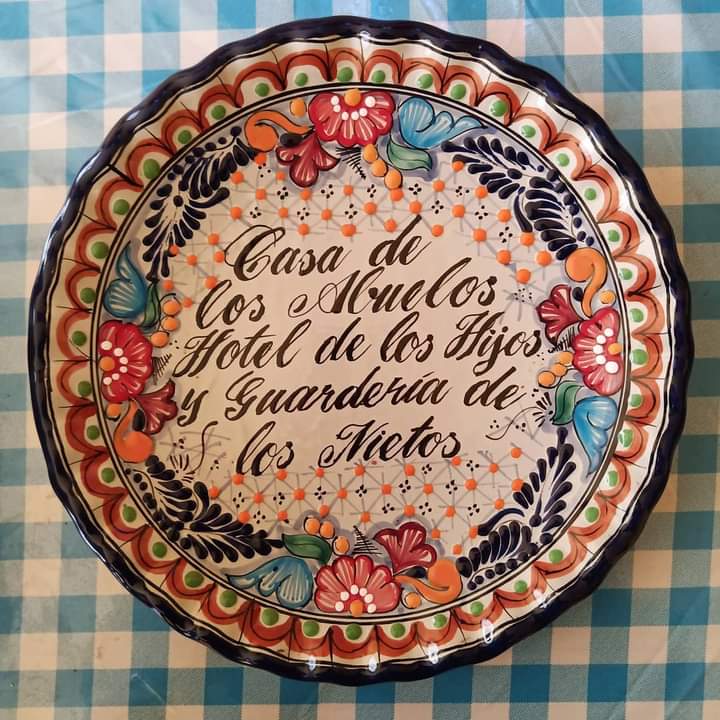 Casa de
los Abuelos
Hotel de los Hijos
y Guardería de
los Nietos